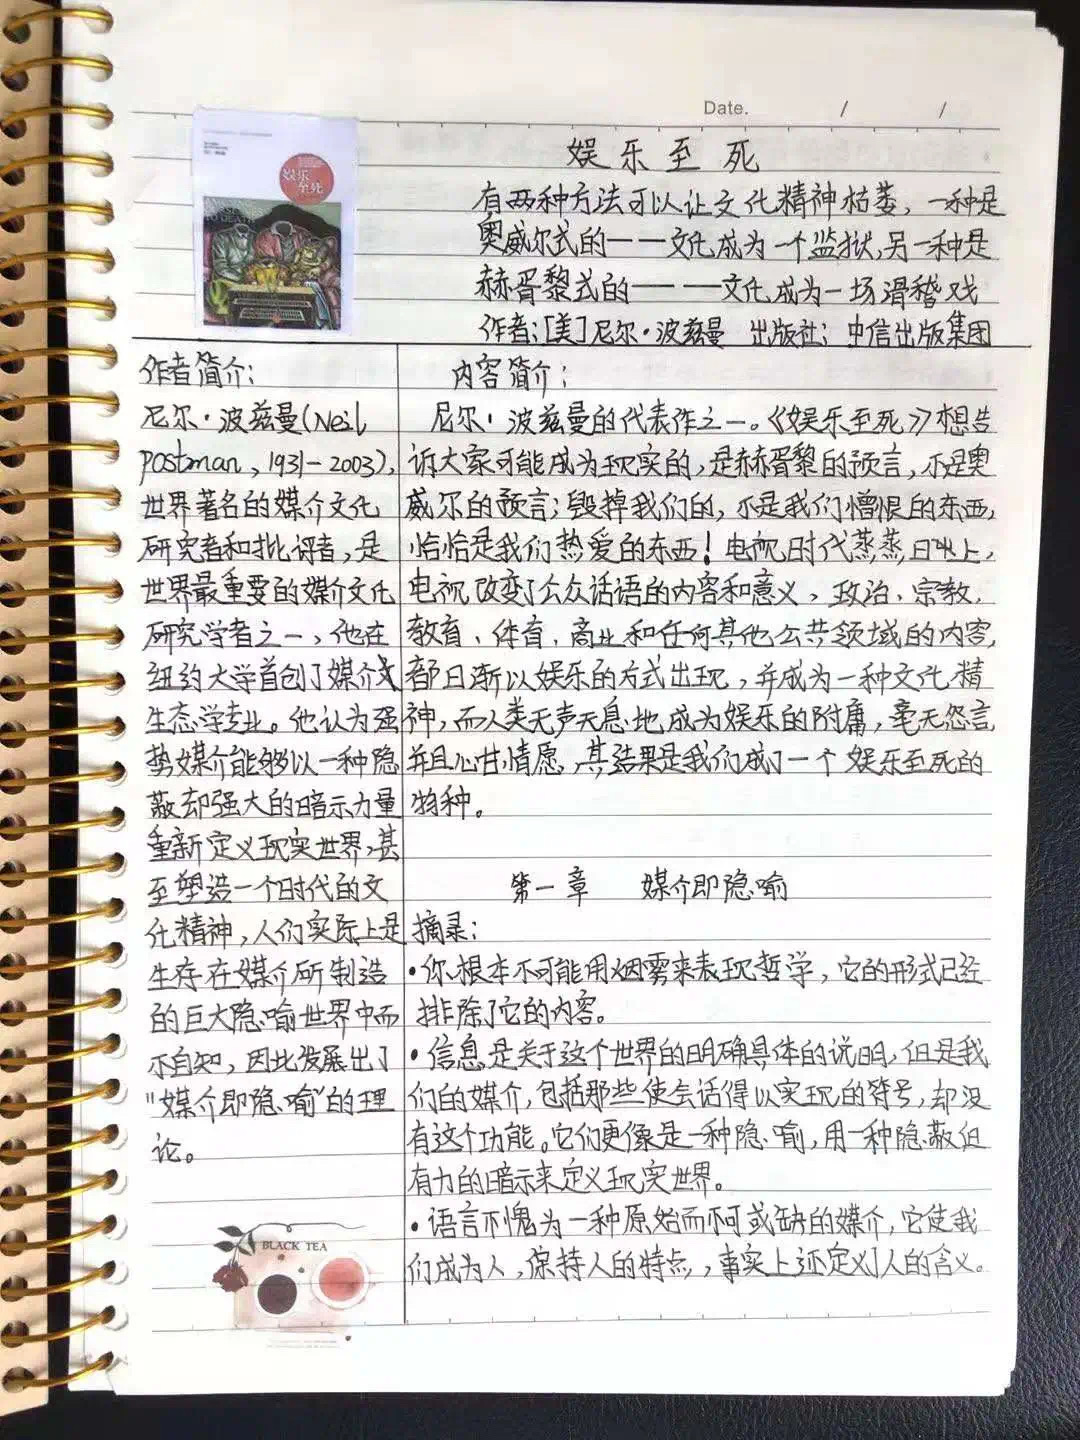 Date. / /
娱乐至死
TO DEATH
娱乐至死
有两种方法可以让文化精神枯萎，一种是
奥威尔式的——文化成为一个监狱，另一种是
赫胥黎式的——文化成为一场滑稽戏
作者：[美]尼尔·波兹曼 出版社：中信出版集团
作者简介：
尼尔·波兹曼(Neil
Postman，1931-2003)，
世界著名的媒介文化
研究者和批评者，是
世界最重要的媒介文化
研究学者之一，他在
纽约大学首创了媒介
生态学专业。他认为强
势媒介能够以一种隐
蔽却强大的暗示力量
重新定义现实世界，甚
至塑造一个时代的文
化精神，人们实际上是
生存在媒介所制造
的巨大隐喻世界中而
不自知，因此发展出了
“媒介即隐喻”的理
论。
BLACK TEA
内容简介：
尼尔·波兹曼的代表作之一。《娱乐至死》想告
诉大家可能成为现实的，是赫胥黎的预言，不是奥
威尔的预言；毁掉我们的，不是我们憎恨的东西，
恰恰是我们热爱的东西！电视时代蒸蒸日上，
电视改变了公众话语的内容和意义，政治、宗教、
教育、体育、商业和任何其他公共领域的内容，
都日渐以娱乐的方式出现，并成为一种文化精
神，而人类无声无息地成为娱乐的附庸，毫无怨言
并且心甘情愿，其结果是我们成了一个娱乐至死的
物种。
第一章 媒介即隐喻
摘录：
·你根本不可能用烟雾来表现哲学，它的形式已经
排除了它的内容。
·信息是关于这个世界的明确具体的说明，但是我
们的媒介，包括那些使会话得以实现的符号，却没
有这个功能。它们更像是一种隐喻，用一种隐蔽但
有力的暗示来定义现实世界。
·语言不愧为一种原始而不可或缺的媒介，它使我
们成为人，保持人的特点，事实上还定义了人的含义。